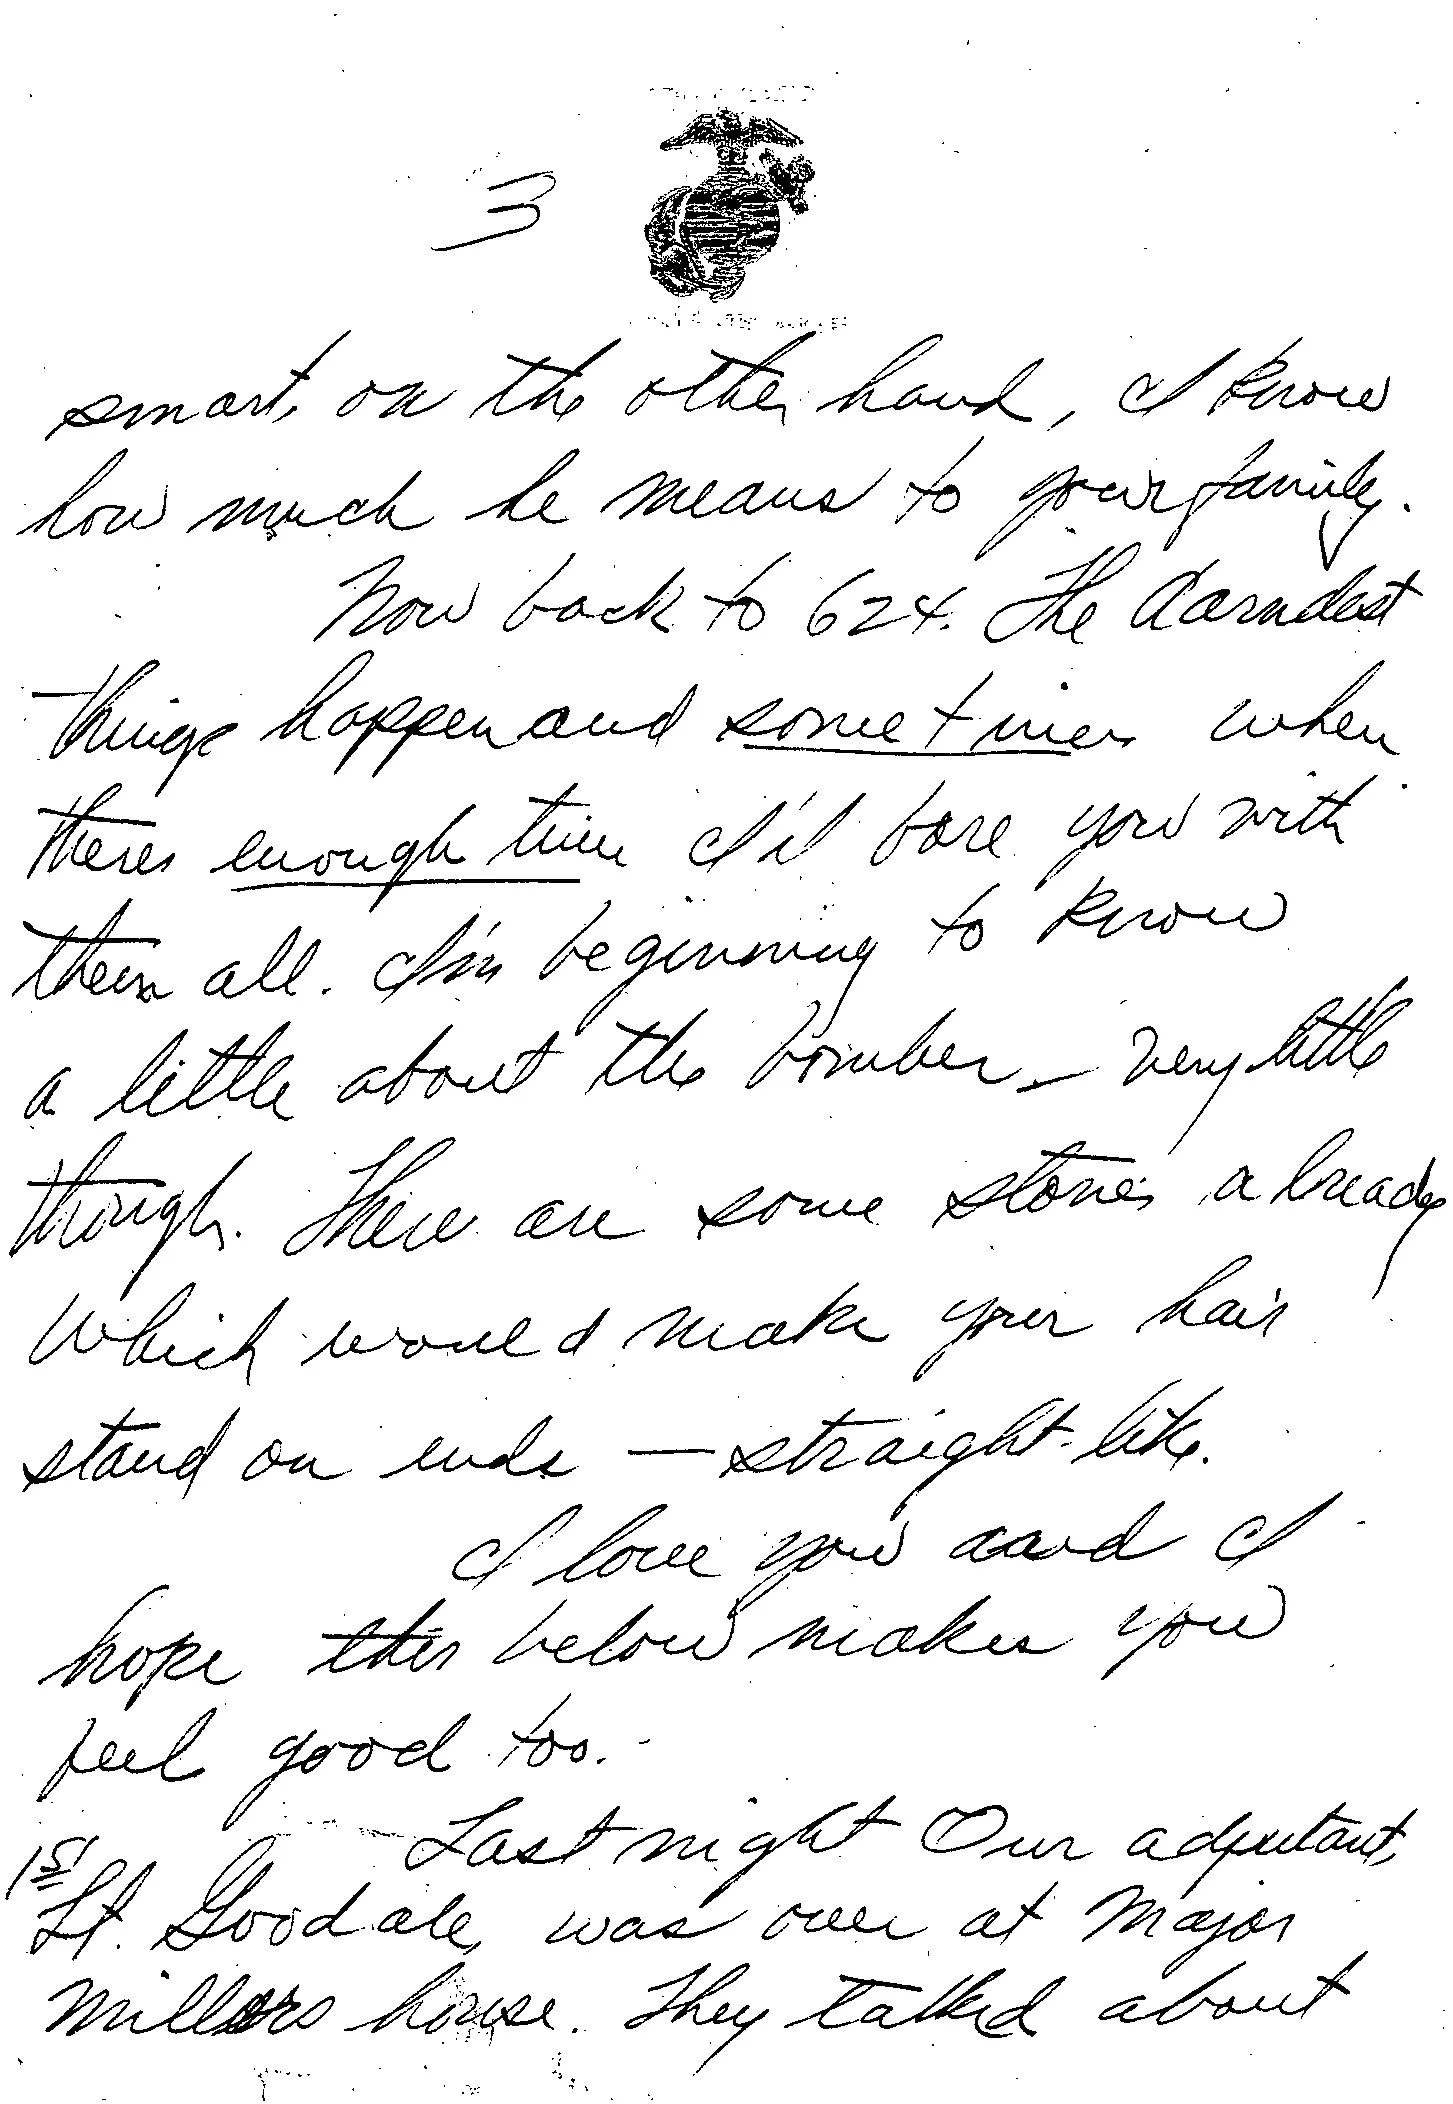 3
smart, on the other hand, I know
how much he means to your family.
Now back to 624. The darndest
things happen and sometimes when
theres enough time I'd bore you with
them all. I'm beginning to know
a little about the bomber — very little
though. There are some stories already
which would make your hair
stand on ends — straight-like.
I love you and I
hope this below makes you
feel good too.
Last night Our adjutant,
1st Lt. Goodale, was over at Major
Millers house. They talked about